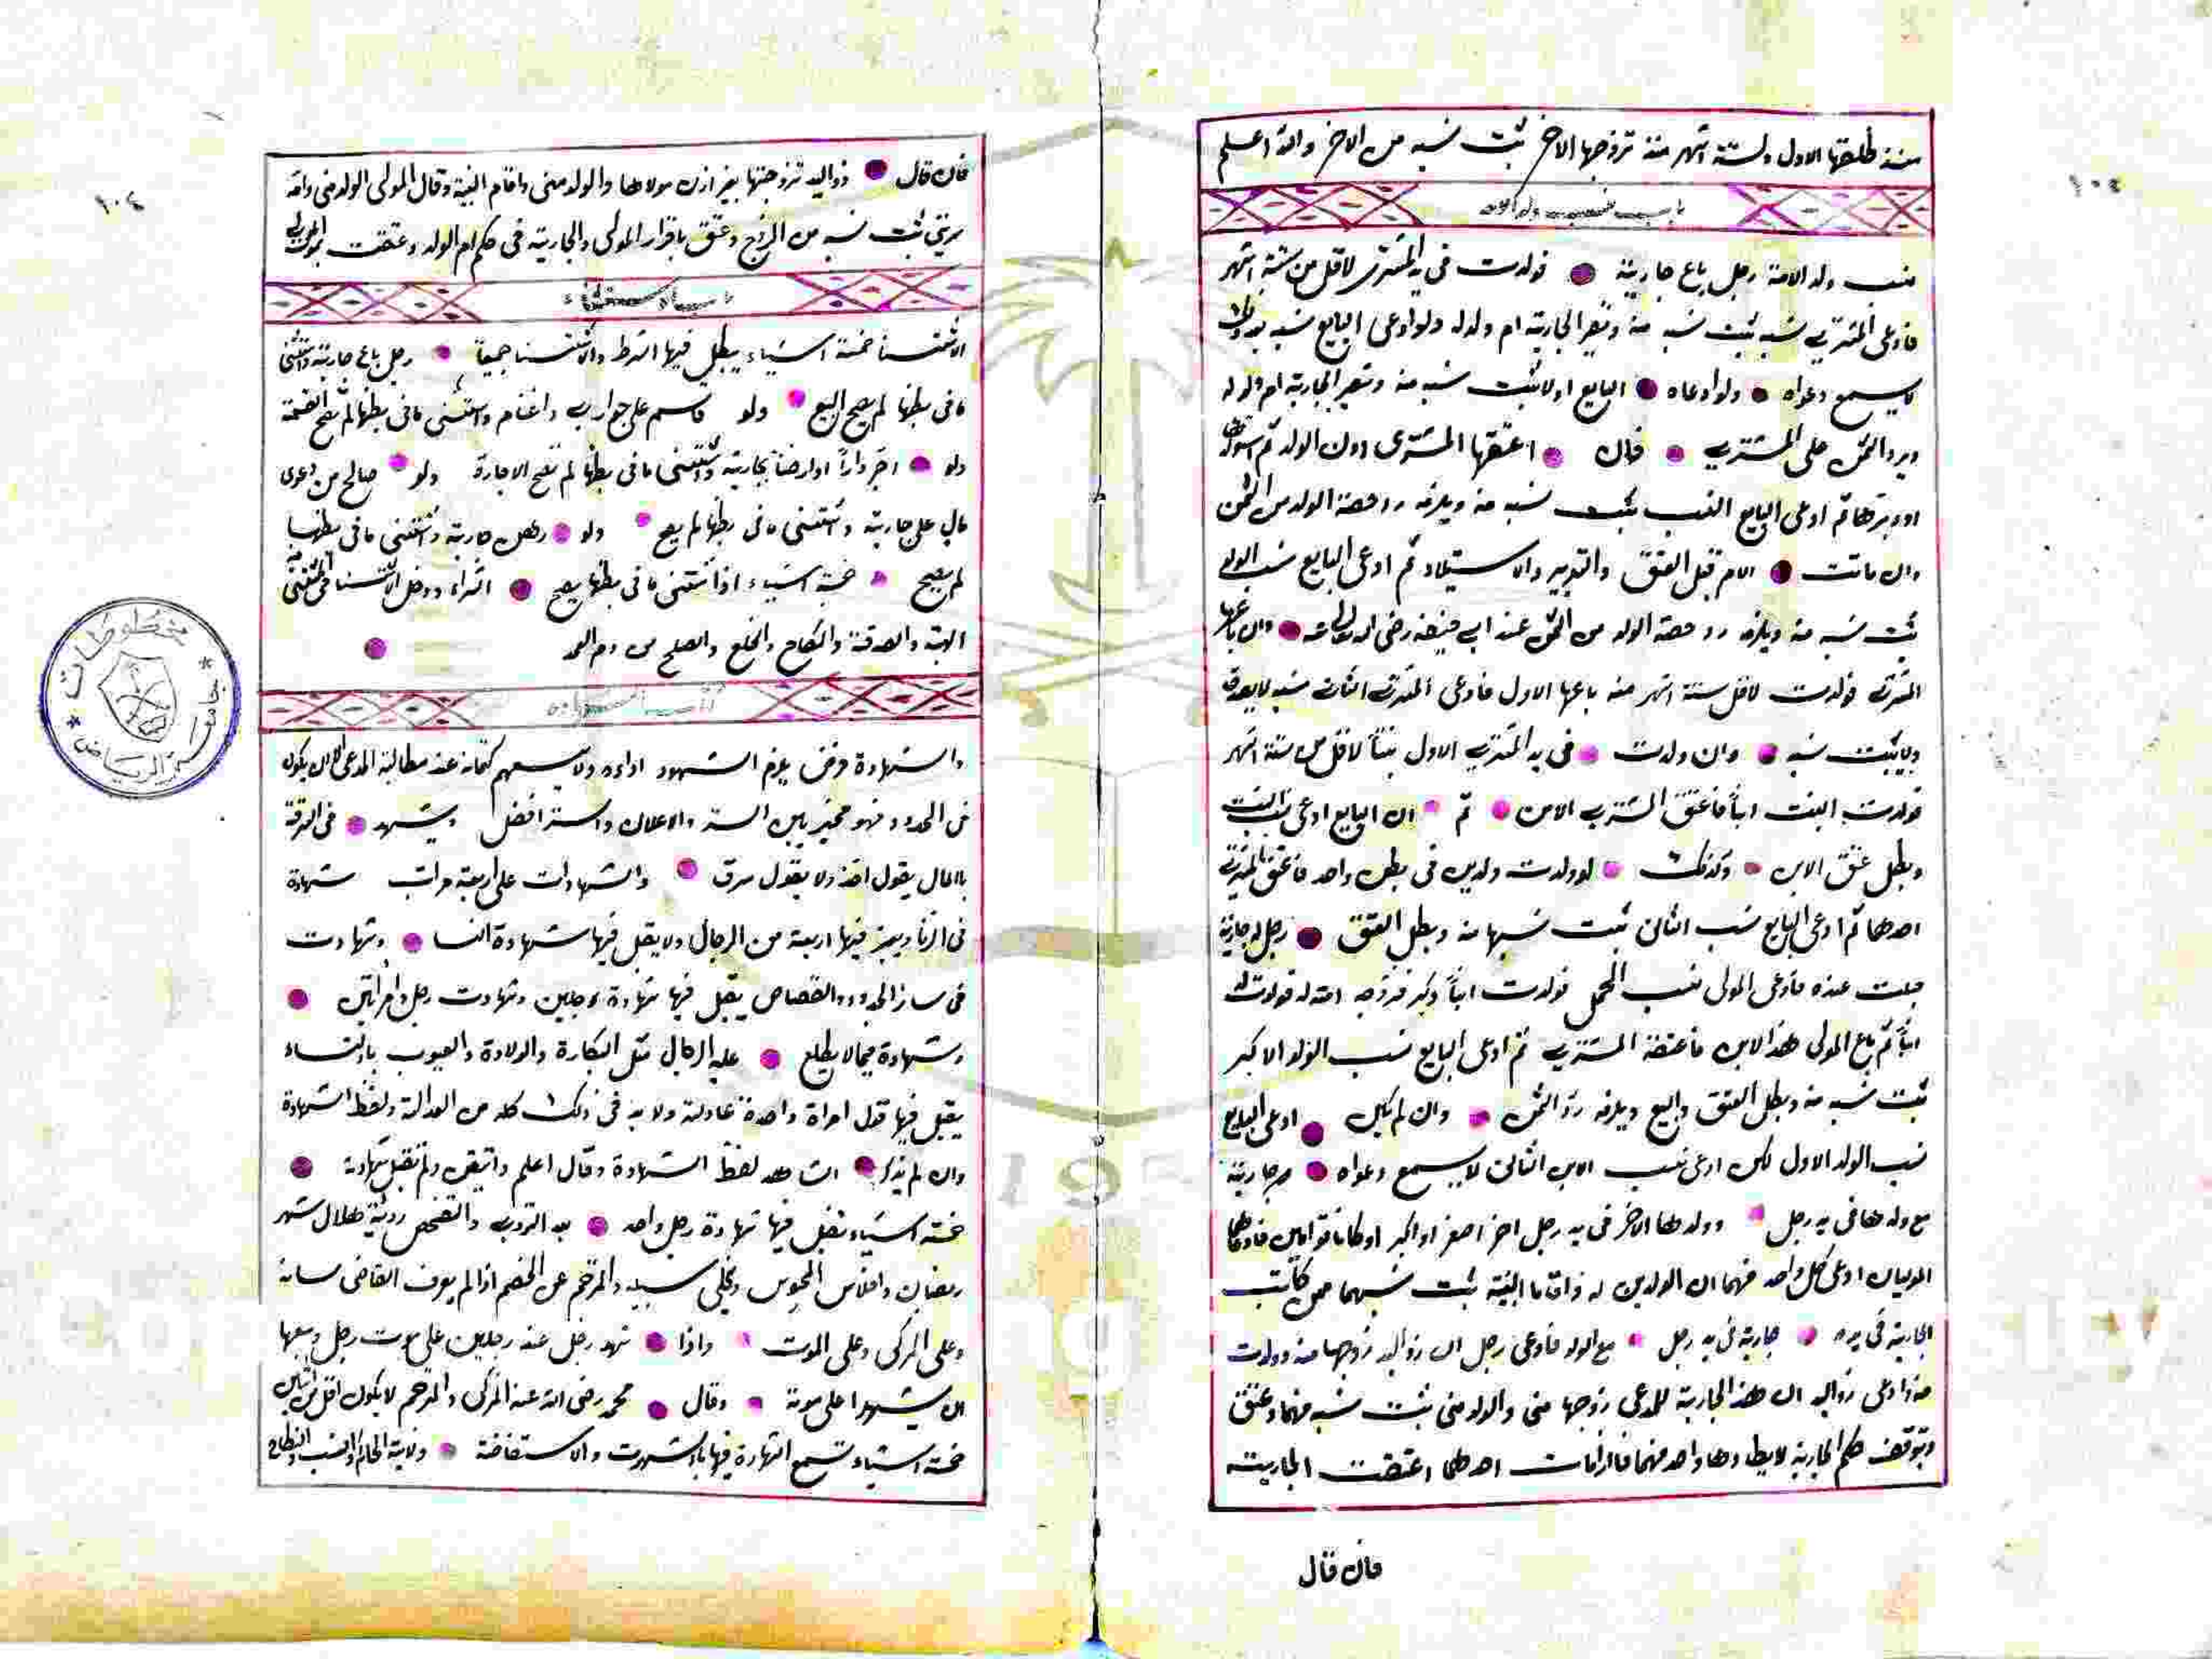 منذ طلقها الاول ولستة اشهر منذ تزوجها الاخر ثبت نسبه من الاخر والله اعلم
باب نسب ولد الامة
نسب ولد الامة رجل باع جارية فولدت فى يد المشترى لاقل من ستة اشهر
فادعى المشترى نسبه ثبت نسبه منه وتصير الجارية ام ولد له ولو ادعى البايع نسبه بعد ذلك
لا يسمع دعواه ولو ادعاه البايع اولا ثبت نسبه منه وتصير الجارية ام ولد له
ويرد الثمن على المشترى فان اعتقها المشترى دون الولد ثم استولدها
او دبرها ثم ادعى البايع النسب ثبت نسبه منه ويلزمه رد حصة الولد من الثمن
وان ماتت الام قبل العتق والتدبير والاستيلاد ثم ادعى البايع نسب الولد
ثبت نسبه منه ويلزمه رد حصة الولد من الثمن عند ابى حنيفة رضى الله تعالى عنه وان باعها
المشترى فولدت لاقل ستة اشهر منذ باعها الاول فادعى المشترى الثانى نسبه لا يصدق
ولا يثبت نسبه وان ولدت فى يد المشترى الاول بنتاً لاقل من ستة اشهر
فولدت البنت ابناً فاعتق المشترى الابن ثم ان البايع ادعى نسب البنت
وبطل عتق الابن وكذلك لو ولدت ولدين فى بطن واحد فاعتق المشترى
احدهما ثم ادعى البايع نسب الثانى ثبت نسبهما منه وبطل العتق رجل له جارية
حبلت عنده فادعى المولى نسب الحمل فولدت ابناً وكبر فزوجه امته له فولدت له
ابناً ثم باع المولى هذا الابن فاعتقه المشترى ثم ادعى البايع نسب الولد الاكبر
ثبت نسبه منه وبطل العتق والبيع ويلزمه رد الثمن وان لم يكن ادعى البايع
نسب الولد الاول لكن ادعى نسب الابن الثانى لا يسمع دعواه جارية
مع ولدها فى يد رجل وولدها الاخر فى يد رجل اخر اصغر او اكبر او كانا توامين فادعاهما
الموليان ادعى كل واحد منهما ان الولدين له واقاما البينة ثبت نسبهما ممن كانت
الجارية فى يده جارية فى يد رجل مع الولد فادعى رجل ان ذو اليد زوجها منه وولدت
منه وادعى ذو اليد ان هذه الجارية للمدعى زوجها منى والولد منى ثبت نسبه منهما وعتق
ويتوقف حكم الجارية لا يطاوها واحد منهما فاذا مات احدهما اعتقت الجارية
فان قال
١٠٤
فان قال ذو اليد تزوجتها بغير اذن مولاها والولد منى واقام البينة وقال المولى الولد منى وامه
ثبت نسبه من الزوج وعتق باقرار المولى والجارية فى حكم ام الولد وعتقت بموت المولى
باب الاستثناء
الاستثنا خمسة اشياء يبطل فيها الشرط والاستثنا جميعاً رجل باع جارية واستثنى
ما فى بطنها لم يصح البيع ولو قاسم على جوارى واغنام واستثنى ما فى بطنها لم تصح القسمة
ولو اجر داراً او ارضاً بجارية واستثنى ما فى بطنها لم تصح الاجارة ولو صالح من دعوى
مال على جارية واستثنى ما فى بطنها لم يصح ولو رهن جارية واستثنى ما فى بطنها
لم يصح خمسة اشياء اذا استثنى ما فى بطنها يصح
الهبة والصدقة والنكاح والخلع والصلح من دم العمد
كتاب الشهادة
والشهادة فرض يلزم الشهود اداءه ولا يسعهم كتمانه عند مطالبة المدعى الا ان يكون
فى الحدود فهو مخير بين الستر والاعلان والستر افضل ويشهد فى السرقة
بالمال يقول اخذ ولا يقول سرق والشهادات على اربعة مراتب شهادة
فى الزنا ويعتبر فيها اربعة من الرجال ولا يقبل فيها شهادة النسا وشهادت
فى سائر الحدود والقصاص يقبل فيها شهادة رجلين وشهادت رجل وامراتين
وشهادة فيما لا يطلع عليه الرجال مثل البكارة والولادة والعيوب بالنساء
يقبل فيها قول امراة واحدة عادلة ولا بد فى ذلك كله من العدالة ولفظ الشهادة
وان لم يذكر الشاهد لفظ الشهادة وقال اعلم واتيقن ولم تقبل شهادته
خمسة اشياء تقبل فيها شهادة رجل واحد بعد التزكية والتفحص روئية هلال شهر
رمضان وافلاس المحبوس وتخلى سبيله والمترجم عن الخصم اذا لم يعرف القاضى لسانه
وعلى المزكى وعلى الموت واذا شهد رجل عند رجلين على موت رجل وسعهما
ان يشهدا على موته وقال محمد رضى الله عنه المزكى والمترجم لا يكون اقل من اثنين
خمسة اشياء تسمع الشهادة فيها بالشهرت والاستفاضة ولاية الحاكم والنسب والنكاح
١٠٤
مخطوطات
جامعة الرياض